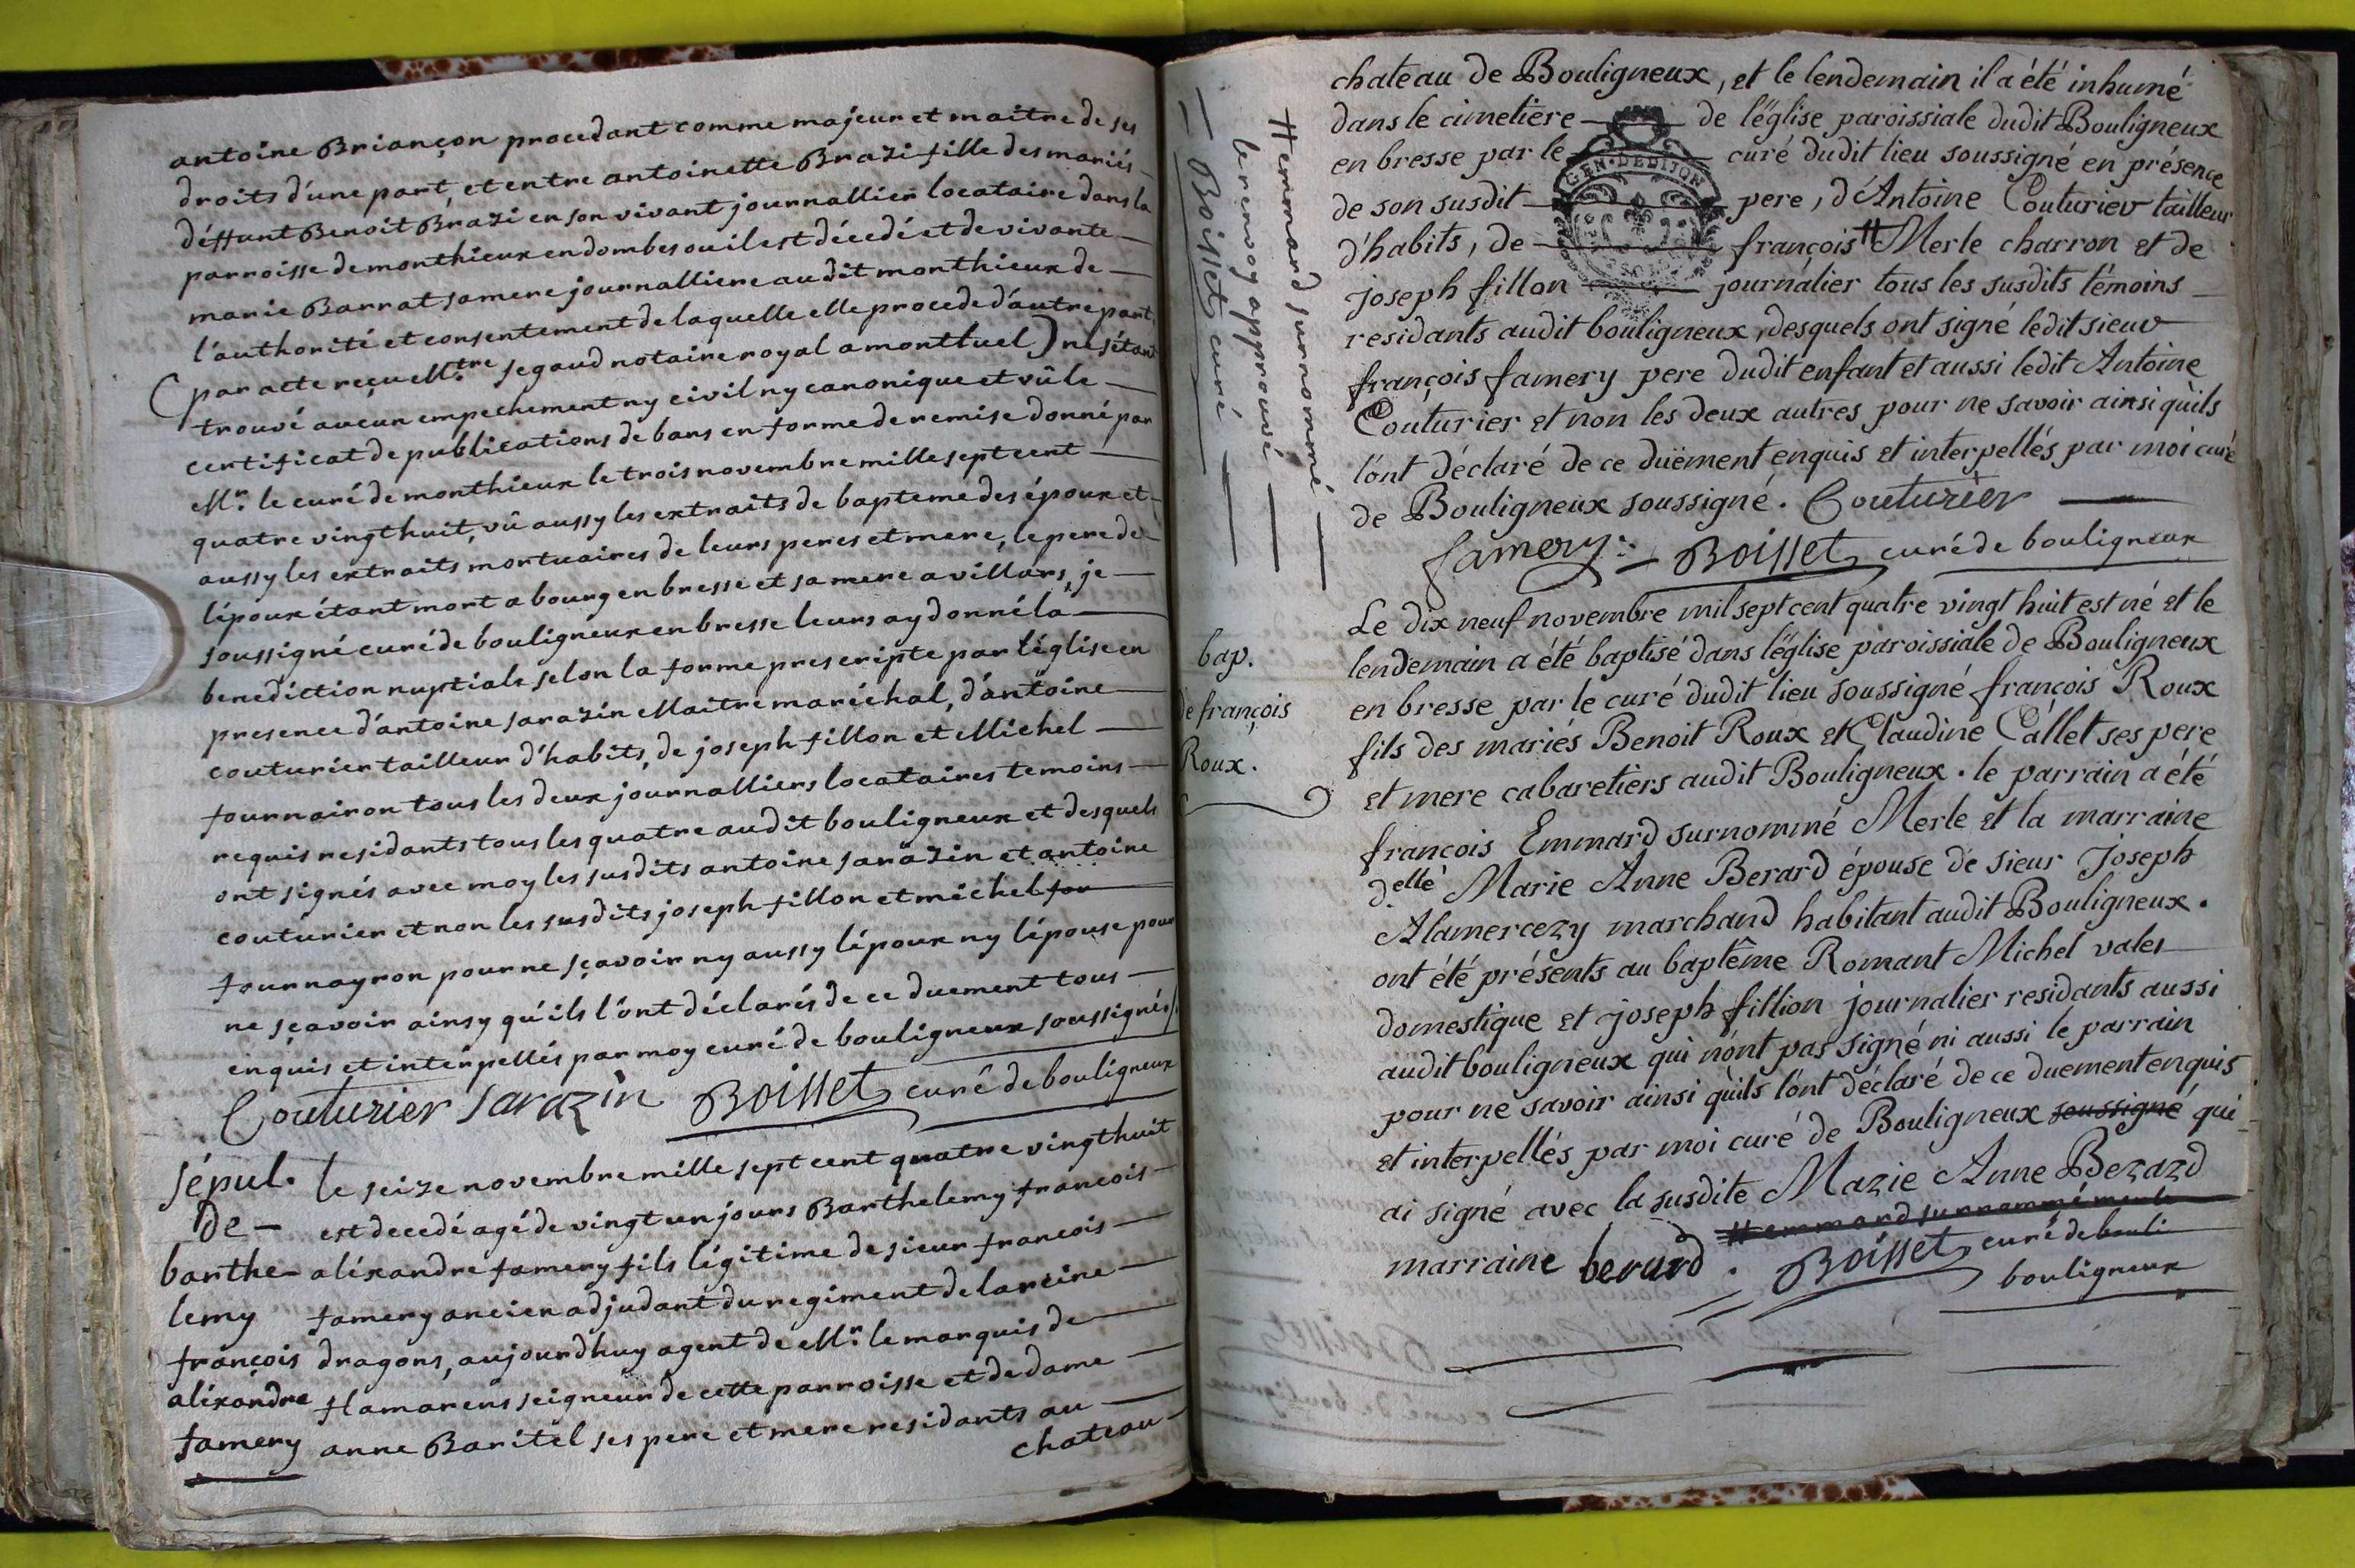 antoine Briançon procedant comme majeur et maitre de ses
droits d'une part, et entre antoinette Brazi fille des mariés
déffunt Benoit Brazi en son vivant journallier locataire dans la
parroisse de monthieux en dombes ou il est décedé et de vivante
marie Barrat sa mere journalliere audit monthieux de
l'authorité et consentement de laquelle elle procede d'autre part,
(par acte reçu M.tre segaud notaire royal a montluel) ne s'étant
trouvé aucun empechement ny civil ny canonique et vû le
certificat de publications de bans en forme de remise donné par
Mr. le curé de monthieux le trois novembre mille sept cent
quatre vingt huit, vû aussy les extraits de bapteme des époux et
aussy les extraits mortuaires de leurs peres et mere, le pere de
l'époux étant mort a bourg en bresse et sa mere a villars, je
soussigné curé de bouligneux en bresse leurs ay donné la
benediction nuptiale selon la forme prescripte par l'église en
presence d'antoine sarazin Maitre maréchal, d'antoine
couturier tailleur d'habits, de joseph fillon et Michel
fournairon tous les deux journalliers locataires temoins
requis residants tous les quatre audit bouligneux et desquels
ont signés avec moy les susdits antoine sarazin et antoine
couturier et non les susdits joseph fillon et michel fou
fournayron pour ne sçavoir ny aussy l'époux ny l'épouse pour
ne sçavoir ainsy qu'ils l'ont déclarés de ce duement tous
enquis et interpellés par moy curé de bouligneux soussignés/.
Couturier sarazin Boisset curé de bouligneux
sépul. le seize novembre mille sept cent quatre vingt huit
de est decedé agé de vingt un jours Barthelemy francois
barthe- aléxandre famery fils légitime de sieur francois
lemy famery ancien adjudant du regiment de la reine
françois dragons, aujourd'huy agent de Mr. le marquis de
aléxandre flamarens seigneur de cette parroisse et de dame
famery anne Baritel ses pere et mere residants au
chateau
# emmard surnommé
le renvoy approuvé
Boisset curé
chateau de Bouligneux, et le lendemain il a été inhumé
dans le cimetiere de l'église paroissiale dudit Bouligneux
en bresse par le curé dudit lieu soussigné en présence
GEN. DE DIJON
de son susdit pere, d'Antoine Couturier tailleur
d'habits, de françois # Merle charron et de
joseph fillon journalier tous les susdits témoins
residants audit bouligneux, desquels ont signé ledit sieur
françois famery pere dudit enfant et aussi ledit Antoine
Couturier et non les deux autres pour ne savoir ainsi qu'ils
l'ont déclaré de ce duëment enquis et interpellés par moi curé
de Bouligneux soussigné. Couturier
famery Boisset curé de bouligneux
bap.
de françois
Roux.
Le dix neuf novembre mil sept cent quatre vingt huit est né et le
lendemain a été baptisé dans l'église paroissiale de Bouligneux
en bresse par le curé dudit lieu soussigné françois Roux
fils des mariés Benoit Roux et Claudine Callet ses pere
et mere cabaretiers audit Bouligneux. le parrain a été
françois Emmard surnommé Merle et la marraine
d.elle Marie Anne Berard épouse de sieur Joseph
Alamercezy marchand habitant audit Bouligneux.
ont été présents au baptême Romant Michel valet
domestique et joseph fillion journalier residants aussi
audit bouligneux qui n'ont pas signé ni aussi le parrain
pour ne savoir ainsi qu'ils l'ont déclaré de ce duement enquis
et interpellés par moi curé de Bouligneux soussigné qui
ai signé avec la susdite Marie Anne Berard
# emmard surnommé merle
marraine berard. Boisset curé de bouli
bouligneux